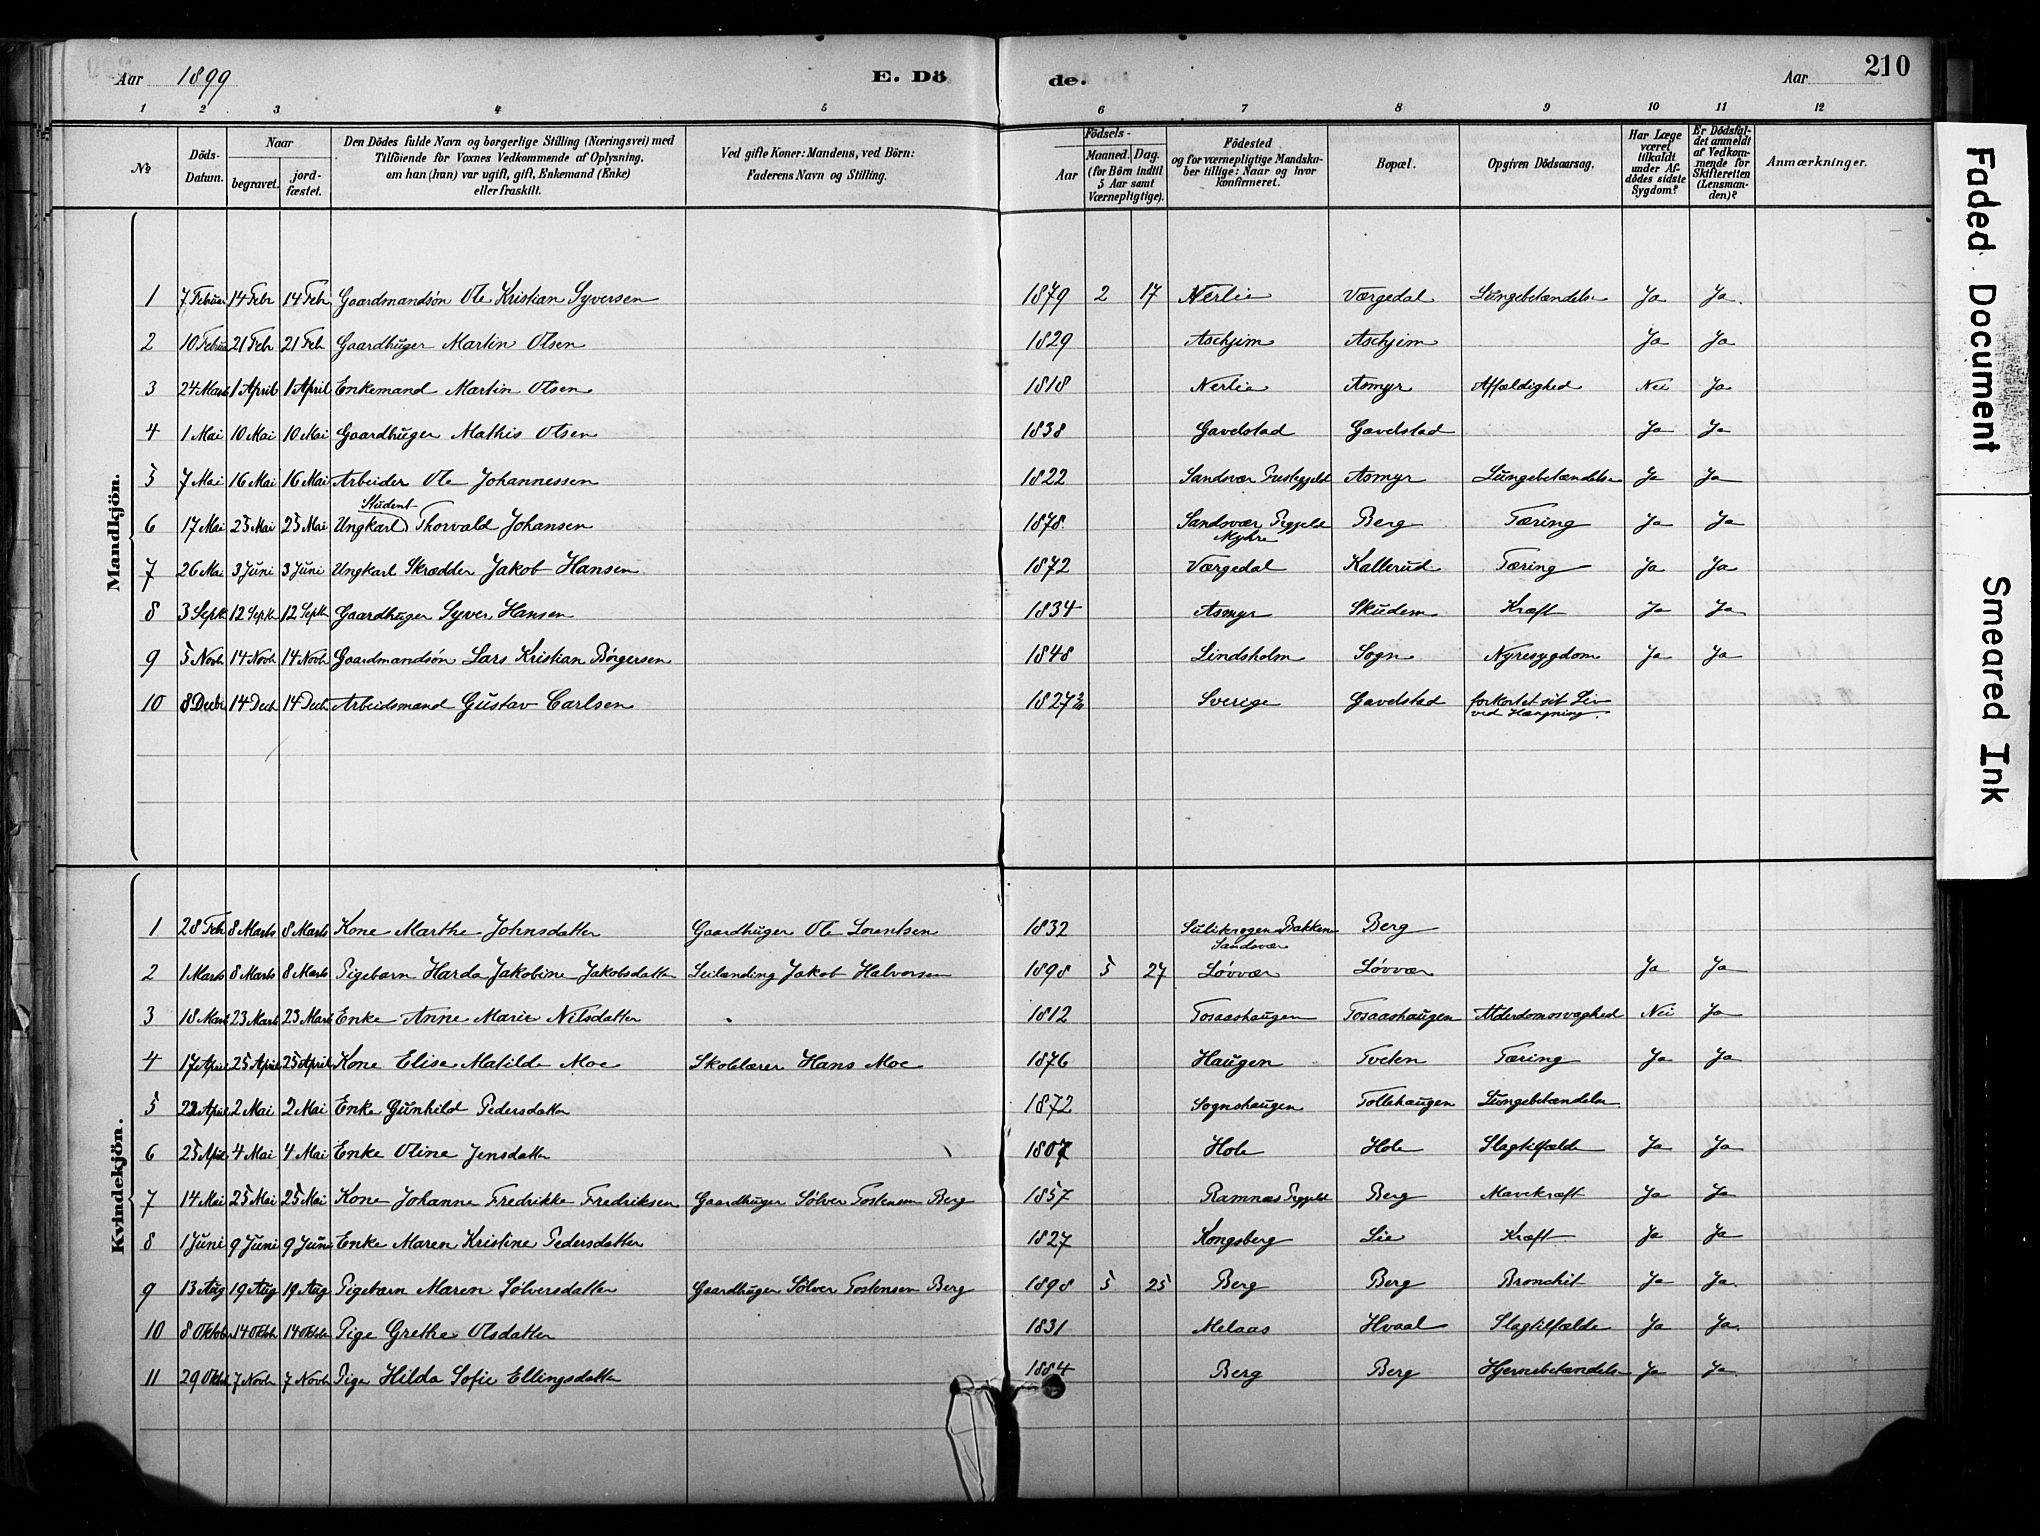 Aar 1899 E. Dö de. Aar 210
1 2 3 4 5 6 7 8 9 10 11 12
No
Döds-Datum.
Naar
begravet.
jord-fæstet.
Den Dödes fulde Navn og borgerlige Stilling (Næringsvei) med
Tilföiende for Voxnes Vedkommende af Oplysning,
om han (hun) var ugift, gift, Enkemand (Enke)
eller fraskilt.
Ved gifte Koner: Mandens, ved Börn:
Faderens Navn og Stilling.
Födsels-
Aar
Maaned. Dag.
(for Börn indtil
5 Aar samt
Værnepligtige).
Födested
og for værnepligtige Mandska-
ber tillige: Naar og hvor
konfirmeret.
Bopæl.
Opgiven Dödsaarsag.
Har Læge
været
tilkaldt
under Af-
dödes sidste
Sygdom?
Er Dödsfal-
det anmeldt
af Vedkom-
mende for
Skifteretten
(Lensman-
den)?
Anmærkninger.
Mandkjön.
1 7 Februar 14 Febr 14 Febr Gaardmandsøn Ole Kristian Syversen 1879 2 17 Nerlie Værgedal Lungebetændelse Ja Ja
2 10 Februar 21 Febr 21 Feb Gaardbruger Martin Olsen 1829 Aschjem Aschjem Ja Ja
3 24 Marts 1 April 1 April Enkemand Martin Olsen 1818 Nerlie Asmyr Affældighed Nei Ja
4 1 Mai 10 Mai 10 Mai Gaardbruger Mathis Olsen 1838 Gavelstad Gavelstad Ja Ja
5 7 Mai 16 Mai 16 Mai Arbeider Ole Johannessen 1822 Sandsvær Prestegjeld Asmyr Lungebetændelse Ja Ja
Student
6 17 Mai 25 Mai 25 Mai Ungkarl Thorvald Johansen 1878 Sandsvær Prgjeld Berg Tæring Ja Ja
Myhre
7 26 Mai 3 Juni 3 Juni Ungkarl Skrædder Jakob Hansen 1872 Værgedal Kallerud Tæring Ja Ja
8 3 Septb 12 Septb 12 Septb Gaardbruger Syver Hansen 1834 Asmyr Skudem Kræft Ja Ja
9 5 Novb 14 Novb 14 Novb Gaardmandsøn Lars Kristian Børgersen 1848 Lindsholm Sogn Nyresygdom Ja Ja
10 8 Decbr 14 Decb 14 Decb Arbeidsmand Gustav Carlsen 1827 Sverige Gavelstad forkortet sit Liv
ved Hængning.
Kvindekjön.
1 28 Feb 8 Marts 8 Marts Kone Marthe Johnsdatter Gaardbruger Ole Lorentsen 1832 Bakken Berg
Sandsvær
2 1 Marts 8 Marts 8 Marts Pigebarn Harda Jakobine Jakobsdatter Leilænding Jakob Halvorsen 1898 5 27 Løvvær Løvvær Ja Ja
3 18 Marts 23 Marts 23 Marts Enke Anne Marie Nilsdatter 1812 Tosaashaugen Tosaashaugen Alderdomssvaghed Nei Ja
4 17 April 25 April 25 April Kone Elise Matilde Moe Skolelærer Hans Moe 1876 Haugen Tveten Tæring Ja Ja
5 22 April 2 Mai 2 Mai Enke Gunhild Pedersdatter 1872 Sognshaugen Tollehaugen Lungebetændelse
6 25 April 4 Mai 4 Mai Enke Oline Jensdatter 1807 Hole Hole Slagtilfælde Ja Ja
7 14 Mai 25 Mai 25 Mai Kone Johanne Fredrikke Fredriksen Gaardbruger Sölver Tostensen Berg 1857 Ramnæs Prgjeld Berg Mavekræft Ja Ja
8 1 Juni 9 Juni 9 Juni Enke Maren Kristine Pedersdatter 1827 Kongsberg Lie Kræft Ja Ja
9 13 Aug 19 Aug 19 Aug Pigebarn Maren Sölversdatter Gaardbruger Sölver Tostensen Berg 1898 5 25 Berg Berg Bronchit Ja Ja
10 8 Oktob 14 Oktob 14 Oktob Pige Grethe Olsdatter 1831 Melaas Hvaal Slagtilfælde Ja Ja
11 29 Oktob 7 Novb 7 Novb Pige Hilda Sofie Ellingsdatter 1884 Berg Berg Hjernebetændelse Ja Ja
Faded Document
Smeared Ink